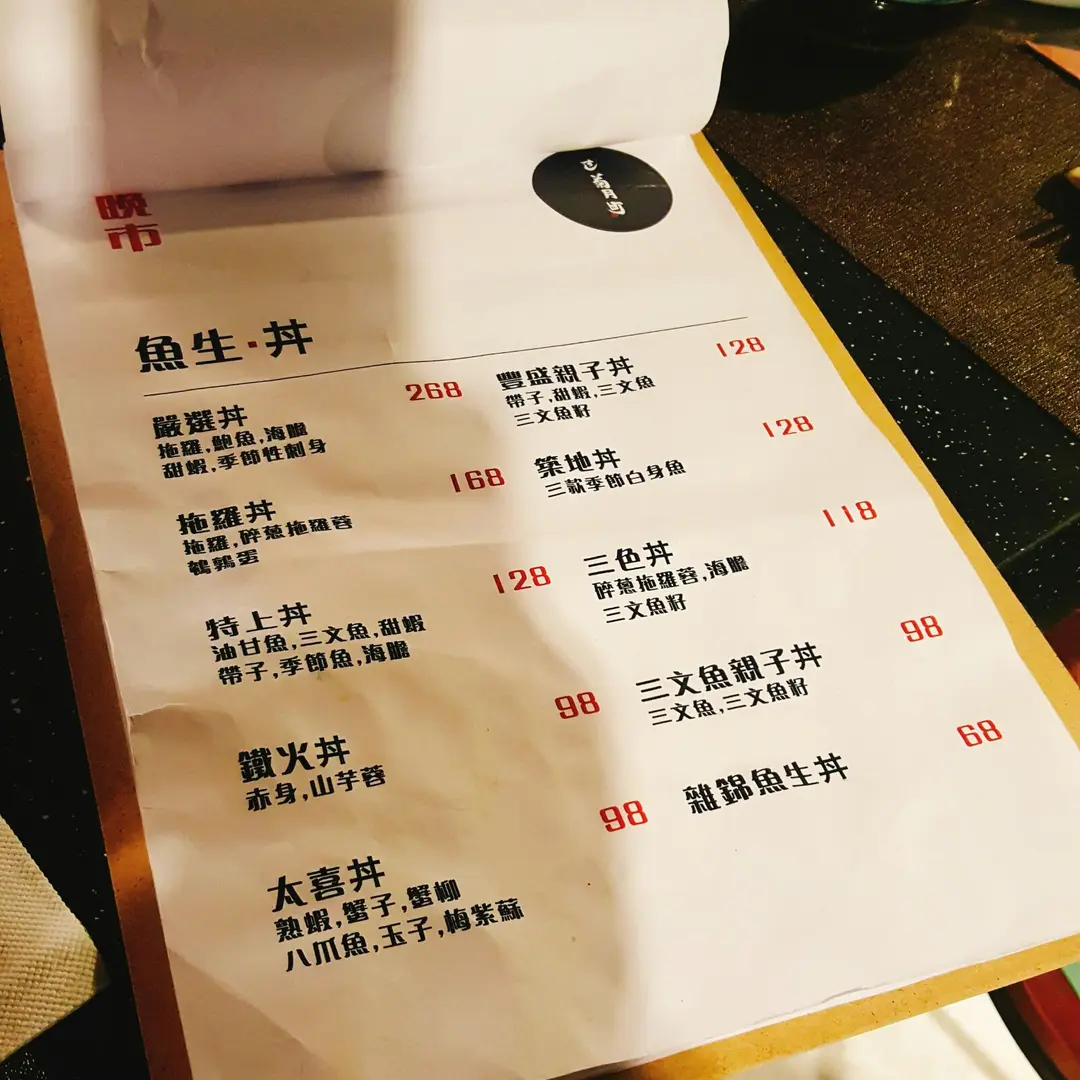 晚
市
魚生·丼
嚴選丼 268
拖羅,鮑魚,海膽
甜蝦,季節性刺身
拖羅丼 168
拖羅,碎蔥拖羅蓉
鵪鶉蛋
特上丼 128
油甘魚,三文魚,甜蝦
帶子,季節魚,海膽
鐵火丼 98
赤身,山芋蓉
太喜丼 98
熟蝦,蟹子,蟹柳
八爪魚,玉子,梅紫蘇
豐盛親子丼 128
帶子,甜蝦,三文魚
三文魚籽
築地丼 128
三款季節白身魚
三色丼 118
碎蔥拖羅蓉,海膽
三文魚籽
三文魚親子丼 98
三文魚,三文魚籽
雜錦魚生丼 68